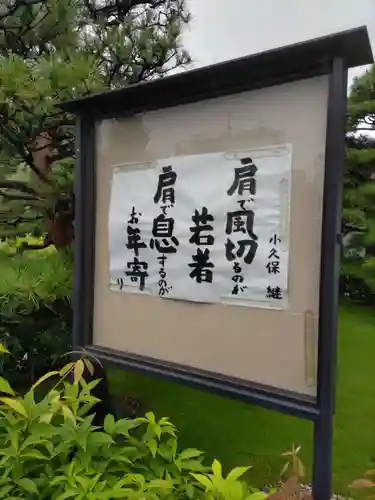 肩で風切るのが
若者
肩で息するのが
お年寄り
小久保 継